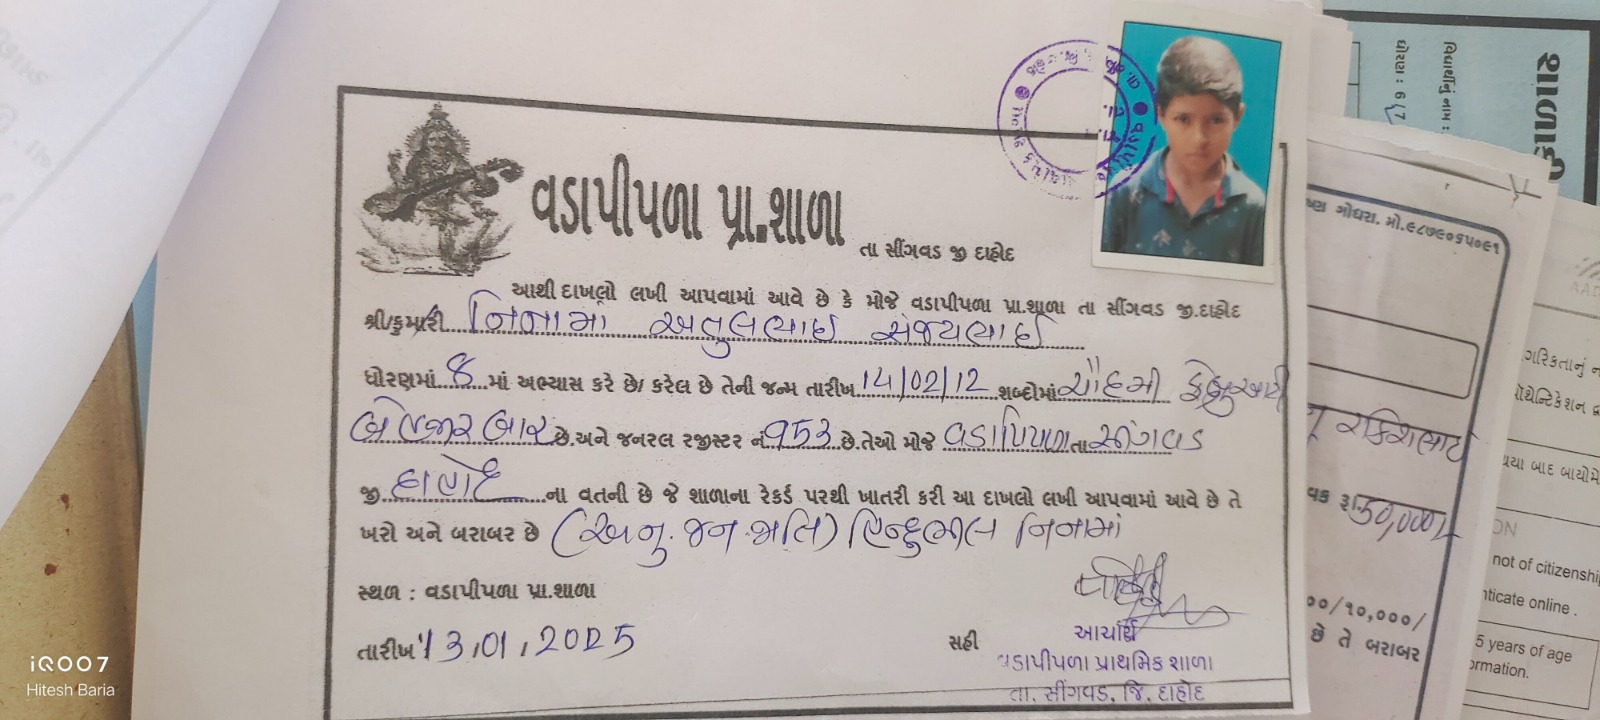 વડાપીપળા પ્રા.શાળા
તા સીંગવડ જી દાહોદ
આથી દાખલો લખી આપવામાં આવે છે કે મોજે વડાપીપળા પ્રા.શાળા તા સીંગવડ જી.દાહોદ
શ્રી/કુમારી નિનામા અતુલભાઈ સંજયભાઈ
ધોરણમાં 8 માં અભ્યાસ કરે છે/ કરેલ છે તેની જન્મ તારીખ 14/02/12 શબ્દોમાં ચૌદમી ફેબ્રુઆરી
બે હજાર બાર છે.અને જનરલ રજીસ્ટર નં 953 છે.તેઓ મોજે વડાપિપળા તા સીંગવડ
જી. દાહોદ ના વતની છે જે શાળાના રેકર્ડ પરથી ખાતરી કરી આ દાખલો લખી આપવામાં આવે છે તે
ખરો અને બરાબર છે (અનુ. જન. જાતિ) હિન્દુ ભીલ નિનામાં
સ્થળ : વડાપીપળા પ્રા.શાળા
તારીખ 13,01,2025
સહી
આચાર્ય
વડાપીપળા પ્રાથમિક શાળા
તા. સીંગવડ, જિ. દાહોદ
વિદ્યાર્થીનું નામ :
ધોરણ : 6
ગોધરા. મો.૯૮૭૯૦૬૫૦૯૧
રૂ. 50,000/-
૦૦/૧૦,૦૦૦/
છે તે બરાબર
not of citizenship
nticate online .
5 years of age
ormation.
iQOO7
Hitesh Baria